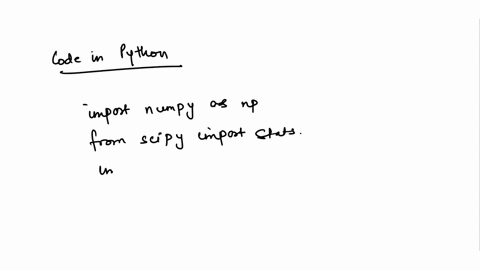 Code in Python
import numpy as np
from scipy import stats.
im